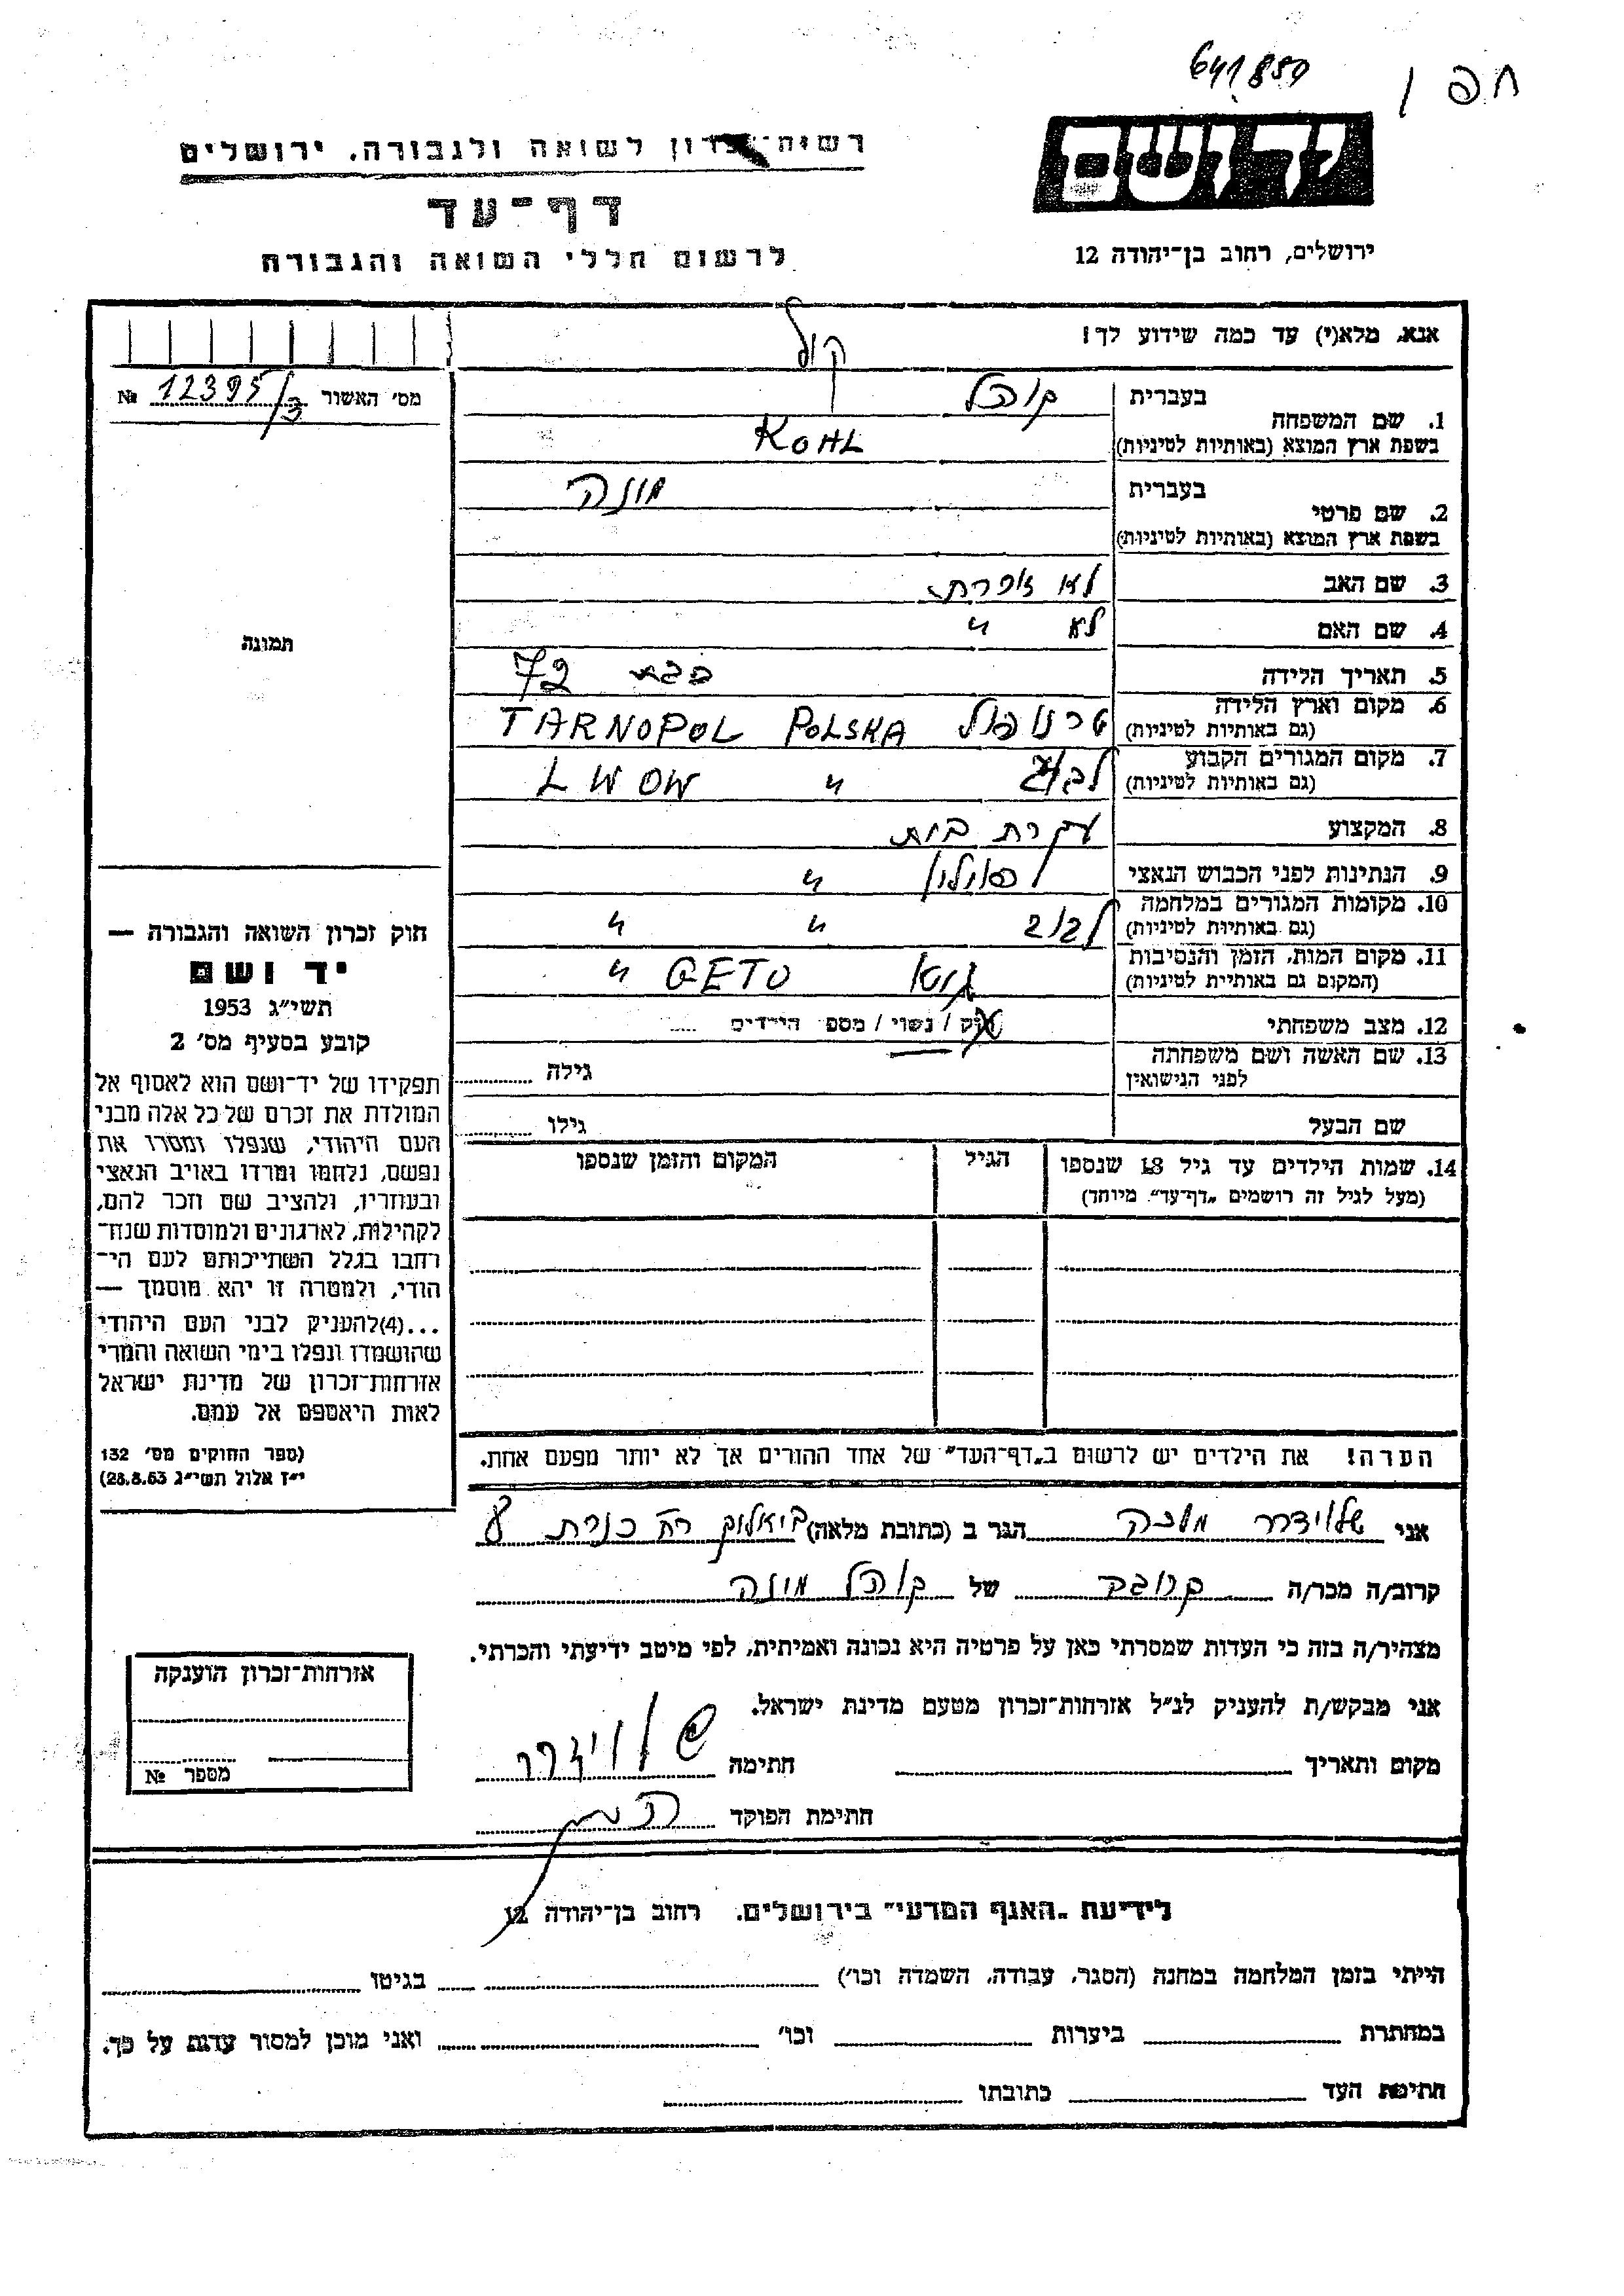 641850
חפ 1
ידושם
רשות־זכרון לשואה ולגבורה, ירושלים
דף־עד
לרשום חללי השואה והגבורה
ירושלים, רחוב בן־יהודה 12
אנא, מלא(י) עד כמה שידוע לך!
מס׳ האשור № 12395/3
קול
1. שם המשפחה
בעברית קוהל
בשפת ארץ המוצא (באותיות לטיניות) KOHL
2. שם פרטי
בעברית מונה
בשפת ארץ המוצא (באותיות לטיניות)
3. שם האב לא זוכרת
4. שם האם לא "
5. תאריך הלידה בבת 72
6. מקום וארץ הלידה
(גם באותיות לטיניות) טרנופול TARNOPOL POLSKA
7. מקום המגורים הקבוע
(גם באותיות לטיניות) לבוב LWOW "
8. המקצוע עקרת בית
9. הנתינות לפני הכבוש הנאצי פולין "
10. מקומות המגורים במלחמה
(גם באותיות לטיניות) לבוב " "
11. מקום המות, הזמן והנסיבות
(המקום גם באותיית לטיניות) גטו GETO "
12. מצב משפחתי רוק / נשוי / מספ׳ הילדים
13. שם האשה ושם משפחתה
לפני הנישואין גילה
שם הבעל גילו
14. שמות הילדים עד גיל 18 שנספו
(מעל לגיל זה רושמים „דף־עד״ מיוחד)
הגיל
המקום והזמן שנספו
הערה! את הילדים יש לרשום ב„דף־העד״ של אחד ההורים אך לא יותר מפעם אחת.
תמונה
חוק זכרון השואה והגבורה —
יד ושם
תשי״ג 1953
קובע בסעיף מס׳ 2
תפקידו של יד־ושם הוא לאסוף אל
המולדת את זכרם של כל אלה מבני
העם היהודי, שנפלו ומסרו את
נפשם, נלחמו ומרדו באויב הנאצי
ובעוזריו, ולהציב שם וזכר להם,
לקהילות, לארגונים ולמוסדות שנח־
רחבו בגלל השתייכותם לעם הי־
הודי, ולמטרה זו יהא מוסמך —
...(4)להעניק לבני העם היהודי
שהושמדו ונפלו בימי השואה והמרי
אזרחות־זכרון של מדינת ישראל
לאות היאספם אל עמם.
(ספר החוקים מס׳ 132
י״ז אלול תשי״ג 28.8.53)
אני שלוידרר מלכה הגר ב (כתובת מלאה)
קרוב/ה מכר/ה קרובה של קוהל מונה
מצהיר/ה בזה כי העדות שמסרתי כאן על פרטיה היא נכונה ואמיתית, לפי מיטב ידיעתי והכרתי.
אני מבקש/ת להעניק לנ״ל אזרחות־זכרון מטעם מדינת ישראל.
מקום ותאריך חתימה שלוידרר
חתימת הפוקד
אזרחות־זכרון הוענקה
מספר №
לידיעת „האגף המדעי״ בירושלים, רחוב בן־יהודה 12
הייתי בזמן המלחמה במחנה (הסגר, עבודה, השמדה וכו׳) בגיטו
במחתרת ביערות וכו׳ ואני מוכן למסור עדות על כך.
חתימת העד כתובתו